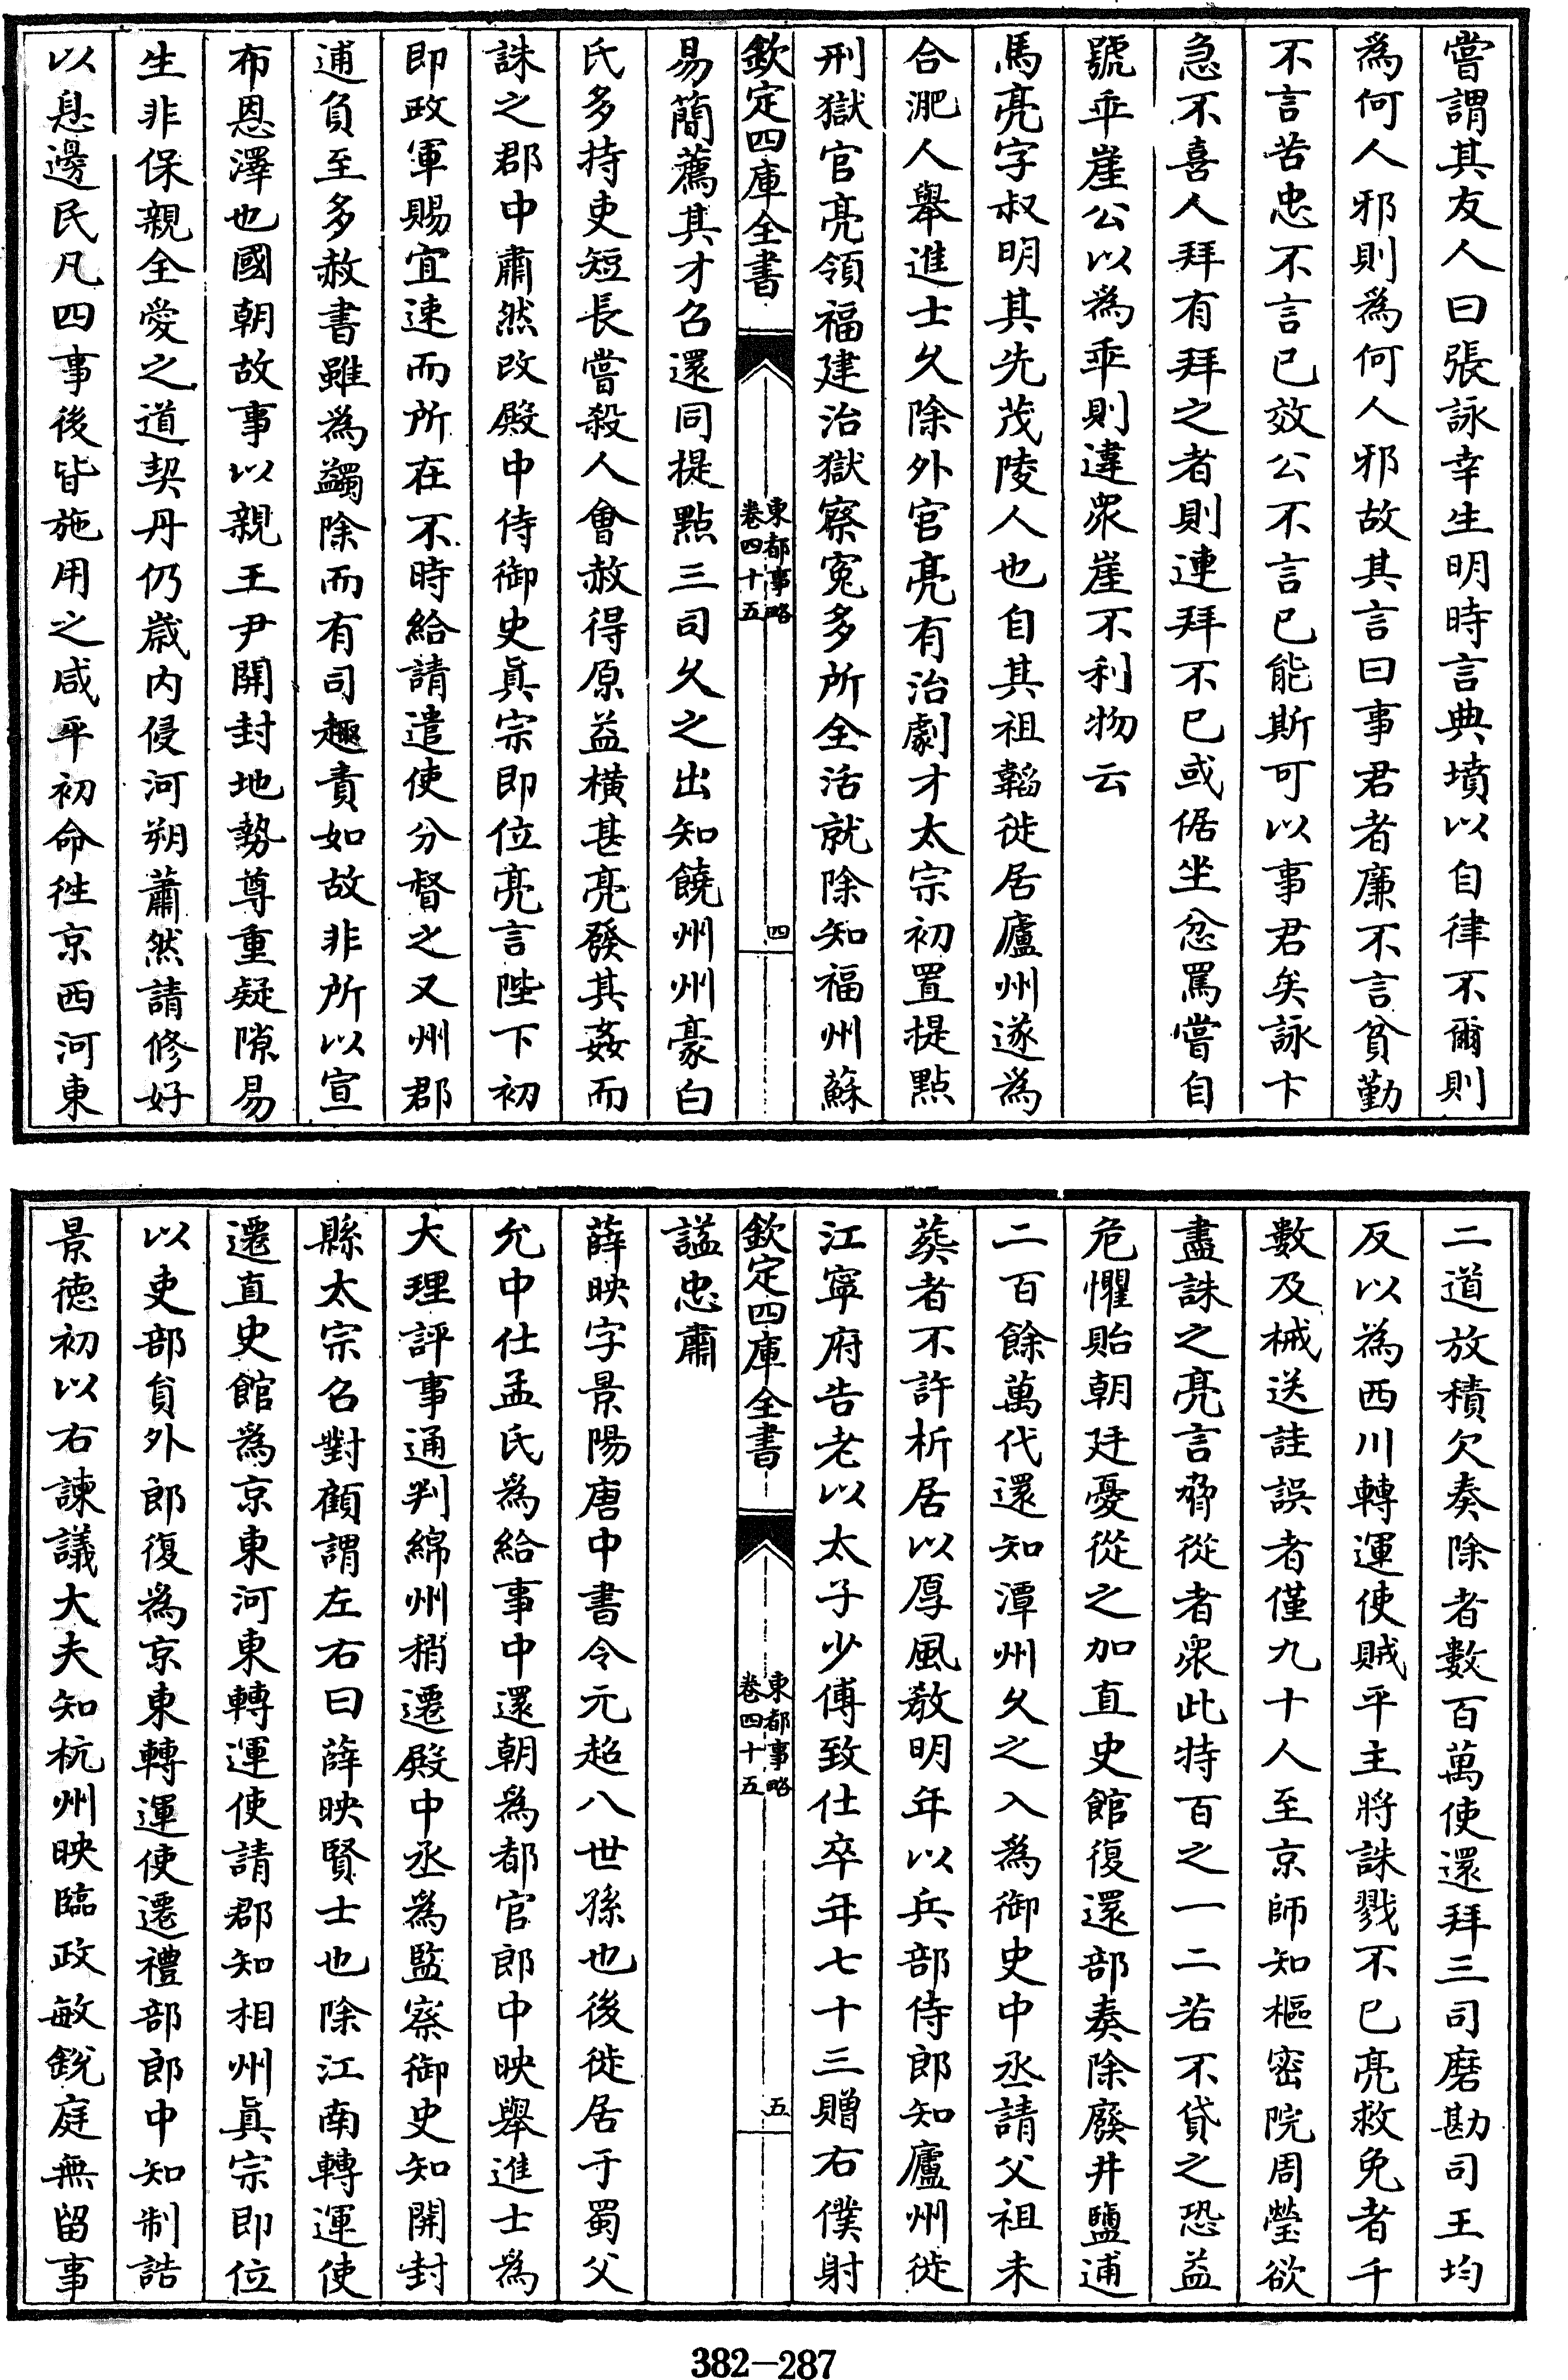 嘗謂其友人曰張詠幸生明時言典墳以自律不爾則
為何人邪則為何人邪故其言曰事君者廉不言貧勤
不言苦忠不言已效公不言已能斯可以事君矣詠卞
急不喜人拜有拜之者則連拜不已或倨坐忿罵嘗自
號乖崖公以為乖則違衆崖不利物云
馬亮字叔明其先茂陵人也自其祖韜徙居廬州遂為
合淝人舉進士久除外官亮有治劇才太宗初置提點
刑獄官亮領福建治獄察寃多所全活就除知福州蘇
欽定四庫全書
東都事略
卷四十五
四
易簡薦其才召還同提點三司久之出知饒州州豪白
氏多持吏短長嘗殺人會赦得原益橫甚亮發其姦而
誅之郡中肅然改殿中侍御史眞宗即位亮言陛下初
即政軍賜宜速而所在不時給請遣使分督之又州郡
逋負至多赦書雖為蠲除而有司趣責如故非所以宣
布恩澤也國朝故事以親王尹開封地勢尊重疑隙易
生非保親全愛之道契丹仍歲內侵河朔蕭然請修好
以息邊民凡四事後皆施用之咸平初命徃京西河東
二道放積欠奏除者數百萬使還拜三司磨勘司王均
反以為西川轉運使賊平主將誅戮不已亮救免者千
數及械送詿誤者僅九十人至京師知樞密院周瑩欲
盡誅之亮言脅從者衆此特百之一二若不貸之恐益
危懼貽朝廷憂從之加直史館復還部奏除廢井鹽逋
二百餘萬代還知潭州久之入為御史中丞請父祖未
葬者不許析居以厚風敎明年以兵部侍郎知廬州徙
江寜府告老以太子少傅致仕卒年七十三贈右僕射
欽定四庫全書
東都事略
卷四十五
五
諡忠肅
薛映字景陽唐中書令元超八世孫也後徙居于蜀父
允中仕孟氏為給事中還朝為都官郎中映舉進士為
大理評事通判綿州稍遷殿中丞為監察御史知開封
縣太宗召對顧謂左右曰薛映賢士也除江南轉運使
遷直史館為京東河東轉運使請郡知相州眞宗即位
以吏部負外郎復為京東轉運使遷禮部郎中知制誥
景德初以右諫議大夫知杭州映臨政敏銳庭無留事
382—287